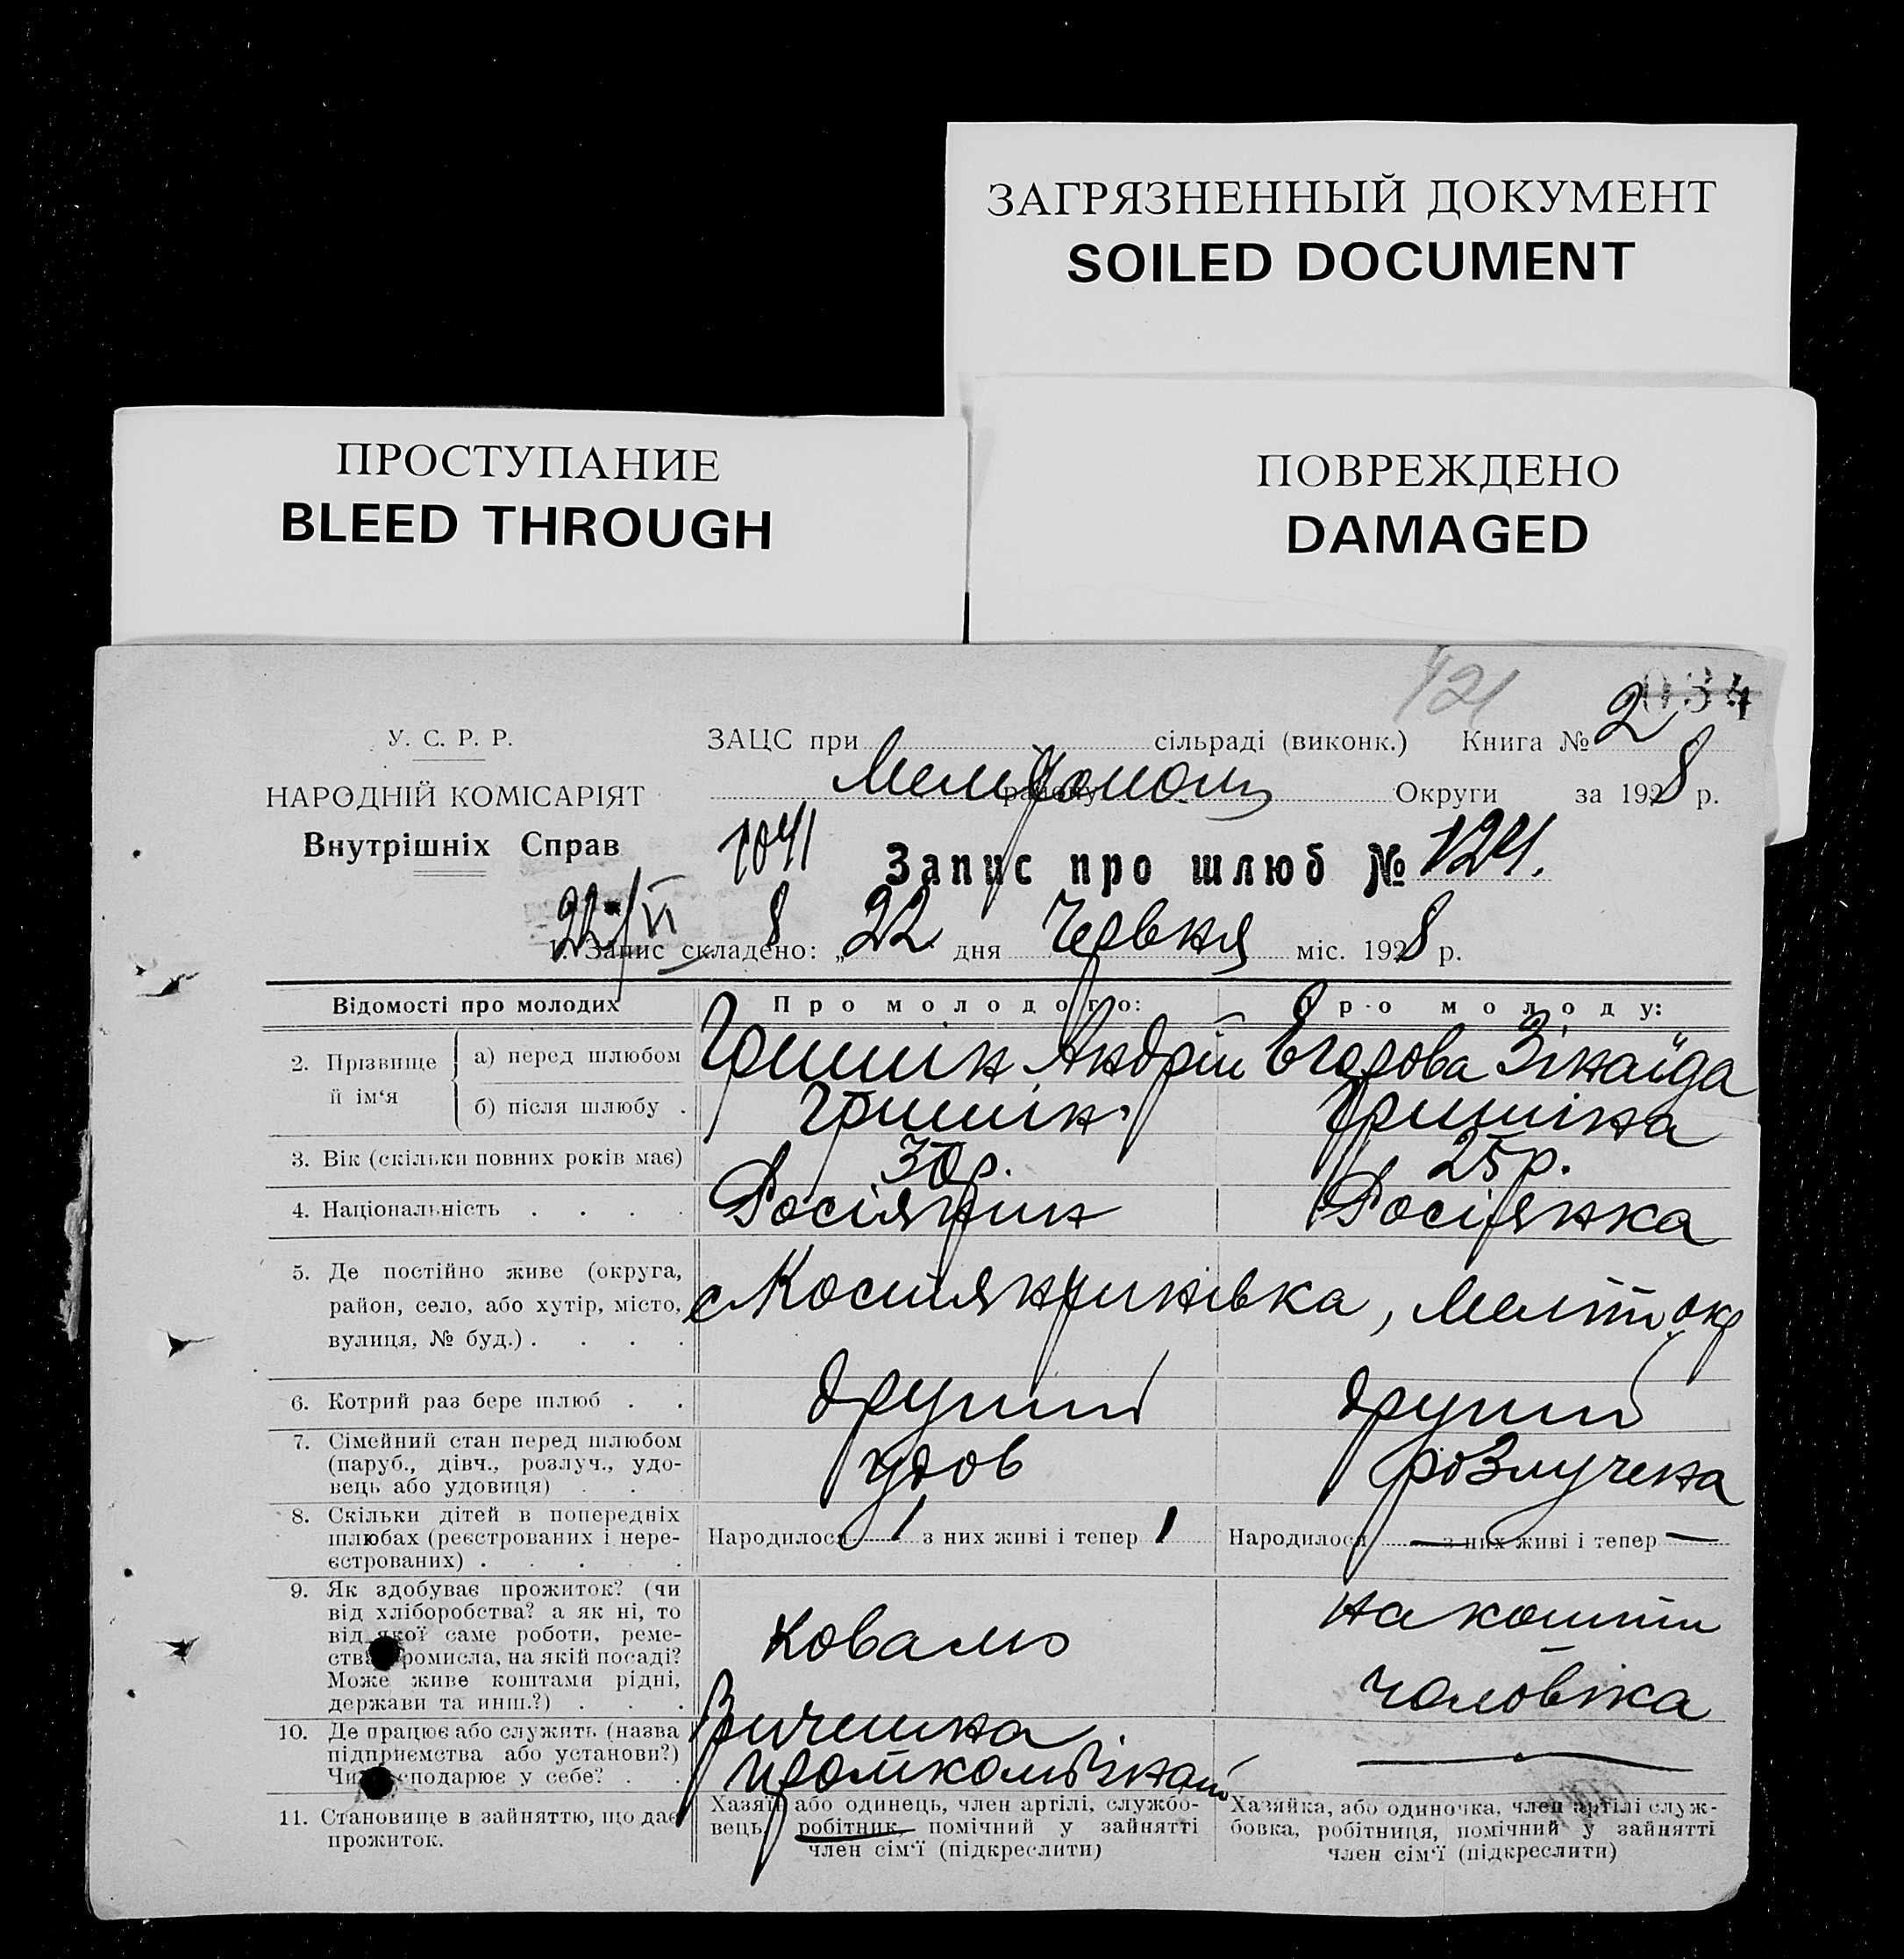 ЗАГРЯЗНЕННЫЙ ДОКУМЕНТ
SOILED DOCUMENT
ПРОСТУПАНИЕ
BLEED THROUGH
ПОВРЕЖДЕНО
DAMAGED
121
034
У. С. Р. Р.
ЗАЦС при сільраді (виконк.) Книга № 2
НАРОДНІЙ КОМІСАРІЯТ
району Округи за 1928 р.
Внутрішніх Справ
1041
Запис про шлюб № 121.
22/VI 8
1. Запис складено: „22 дня Червня міс. 1928 р.
Відомості про молодих
Про молодого:
Про молоду:
2. Прізвище й ім‘я
а) перед шлюбом Гришин Андрій Єгорова Зінаїда
б) після шлюбу . Гришин. Гришіна
3. Вік (скільки повних років має) 30р. 25р.
4. Національність . . . . Росіянин Росіянка
5. Де постійно живе (округа,
район, село, або хутір, місто,
вулиця, № буд.) . . . .
с Костянтинівка, Меліт. окр
6. Котрий раз бере шлюб . . другий другий
7. Сімейний стан перед шлюбом
(паруб., дівч., розлуч., удо-
вець або удовиця) . . .
удов розлучена
8. Скільки дітей в попередніх
шлюбах (реєстрованих і нере-
єстрованих) . . . . .
Народилося 1 з них живі і тепер 1
Народилося — з них живі і тепер —
9. Як здобуває прожиток? (чи
від хліборобства? а як ні, то
від якої саме роботи, реме-
ства, промисла, на якій посаді?
Може живе коштами рідні,
держави та инш.?) . . .
Коваль
на кошти
чоловіка
10. Де працює або служить (назва
підприємства або установи?)
Чи господарює у себе? . .
11. Становище в зайняттю, що дає
прожиток.
Хазяїн або одинець, член аргілі, службо-
вець, робітник, помічний у зайнятті
член сім‘ї (підкреслити)
Хазяйка, або одиночка, член артілі служ-
бовка, робітниця, помічний у зайнятті
член сім‘ї (підкреслити)